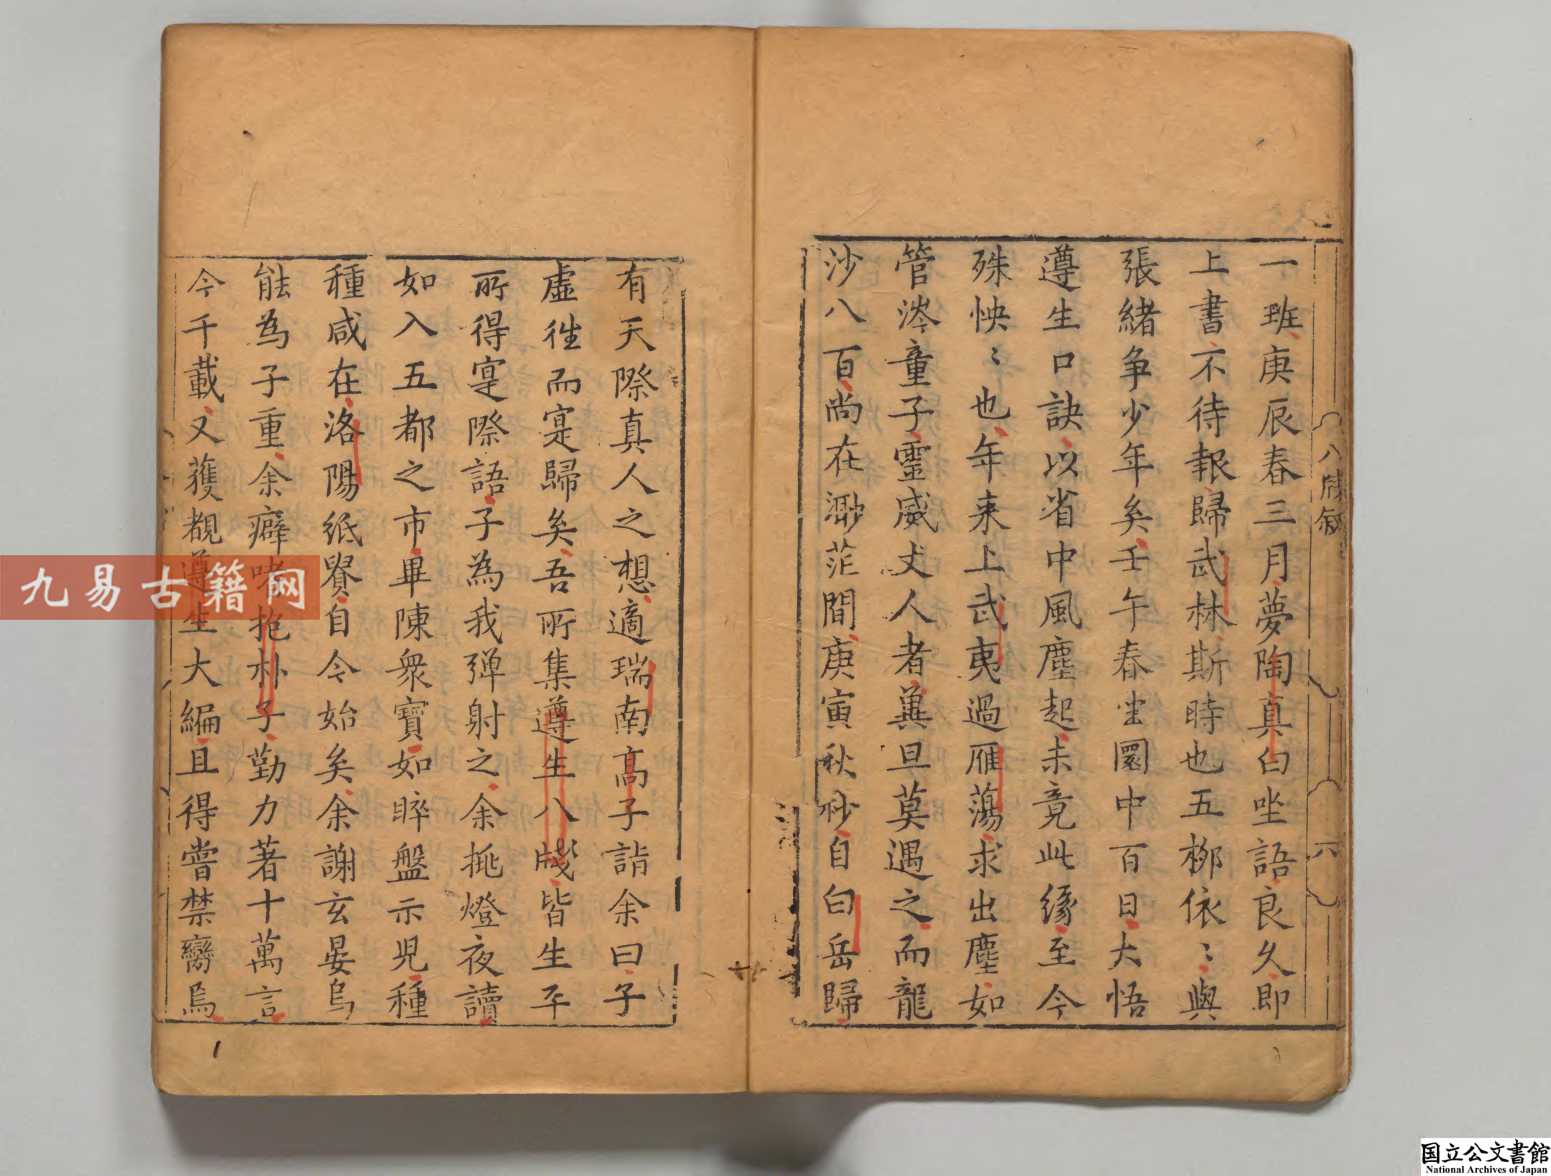 一班庚辰春三月夢陶真白坐語良久即
上書不待報歸武林斯時也五栁依〻與
張緒争少年矣壬午春坐圜中百日大悟
遵生口訣以省中風塵起未竟此緣至今
殊怏〻也年来上武夷過雁蕩求出塵如
管涔童子靈威丈人者兾旦莫遇之而龍
沙八百尚在渺茫間庚寅秋杪自白岳歸
八牋叙
六
有天際真人之想適瑞南髙子詣余曰子
虛徃而寔歸矣吾所集遵生八牋皆生平
所得寔際語子為我弾射之余挑燈夜讀
如入五都之市畢陳衆寶如晬盤示兒種
種咸在洛陽紙貴自今始矣余謝玄晏烏
能為子重余癖嗜抱朴子勤力著十萬言
今千載又獲覩遵生大編且得嘗禁臠烏
九易古籍网
国立公文書館
National Archives of Japan